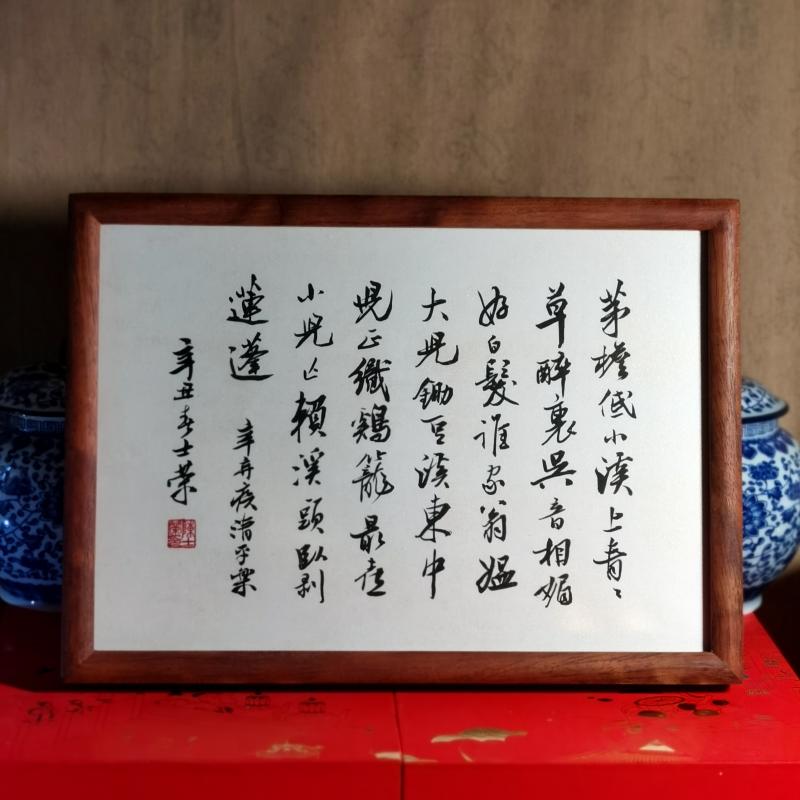 茅檐低小溪上青〻
草醉裏吳音相媚
好白髮誰家翁媼
大兒鋤豆溪東中
兒正織鷄籠最喜
小兒亡賴溪頭臥剥
蓮蓬
辛弃疾清平樂
辛丑春士荣